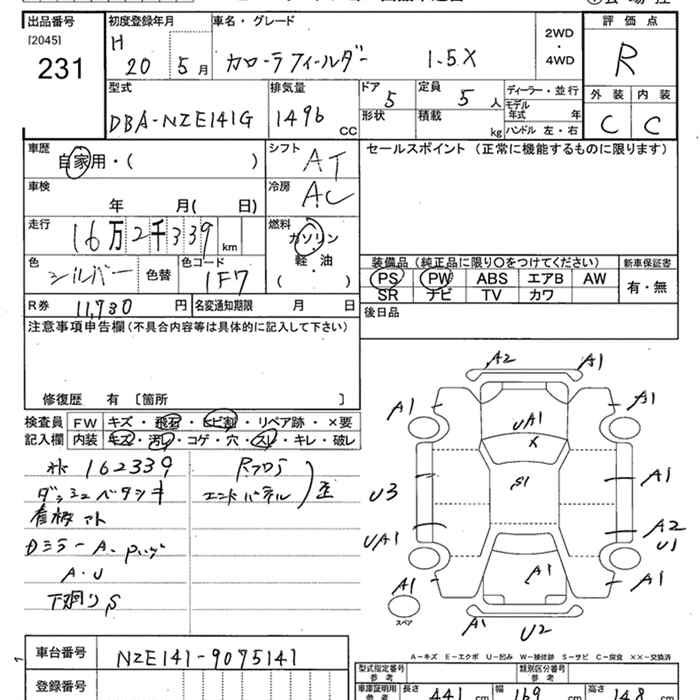 出品番号 初度登録年月 車名・グレード 2WD ・ 4WD 評価点
[2045]
231
H 20 5月 カローラフィールダー 1.5X R
型式 排気量 ドア 定員 ディーラー・並行 外装 内装
DBA-NZE141G 1496 CC 5 5人 モデル年式 年
形状 積載 kg ハンドル 左・右 C C
車歴 シフト セールスポイント (正常に機能するものに限ります)
自家用・( ) AT
車検 冷房
年 月( 日) AC
走行 燃料
16万2千339km ガソリン
軽・油
( )
色 色替 色コード
シルバー 1F7
装備品 (純正品に限り○をつけてください) 新車保証書
PS PW ABS エアB AW 有・無
SR ナビ TV カワ
R券 11,730円 名変通知期限 月 日 後日品
注意事項申告欄 (不具合内容等は具体的に記入して下さい)
修復歴 有 [箇所 ]
検査員 FW キズ・飛石・ヒビ割・リペア跡・×要
記入欄 内装 キズ・汚レ・コゲ・穴・スレ・キレ・破レ
162339
ダッシュベタツキ
看板アト
A・U
下廻りS
エンドパネル 歪
A2
A1
A1
A1
UA1
X
S1
U3
A1
UA1
A2
U1
A1
A1
A1
A1
U2
スペア
A-キズ E-エクボ U-凹み W-補修跡 S-サビ C-腐食 ××-交換済
車台番号 NZE141-9075141
登録番号
型式指定番号 参考 類別区分番号 参考
車庫証明用 参考 長さ 441 cm 幅 169 cm 高さ 148 cm